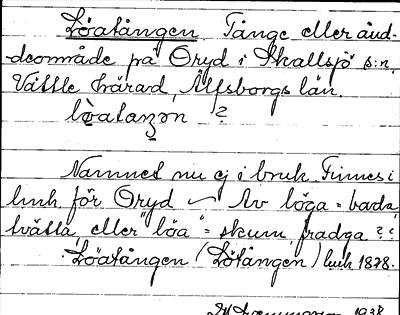 Löatången Tånge eller udd-
-deområde på Öryd i Skallsjö s:n,
Vättle härad, Älfsborgs län.
lòataŋən ?
Namnet nu ej i bruk. Finnes i
lmh. för Öryd ~ Av löga = bada,
tvätta, eller "löa" = skum, fradga ??
Löatången (Lötången) lmh 1878.
1938